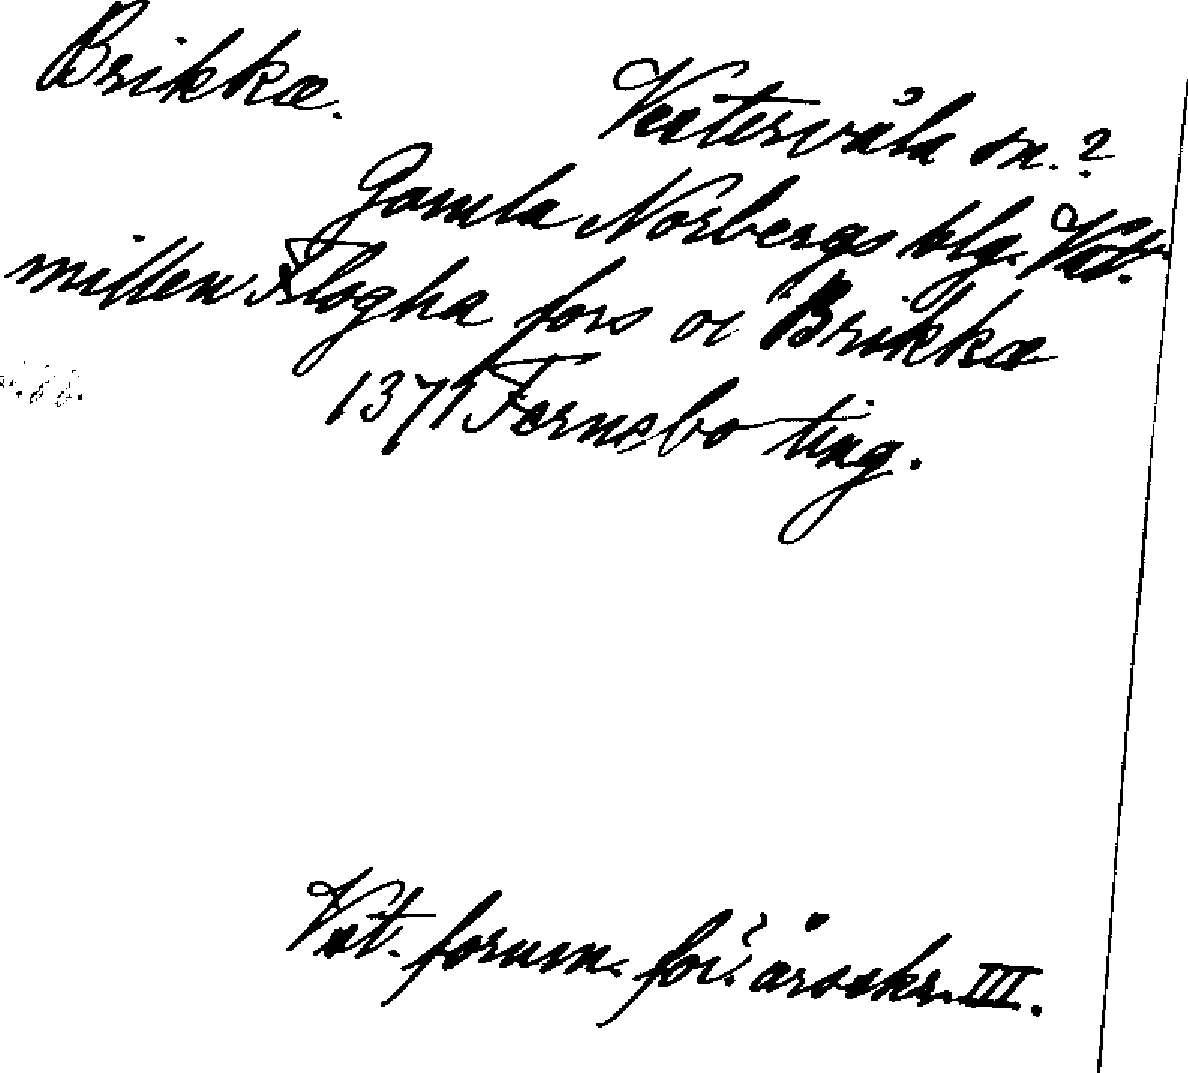 Brikkæ.
Vestervåla sn.?
Gamla Norbergs blg. Vst.
millen Flogha fors oc Brikkæ
1371 Fernebo ting.
Vst. fornm. för:s årsskr. III.